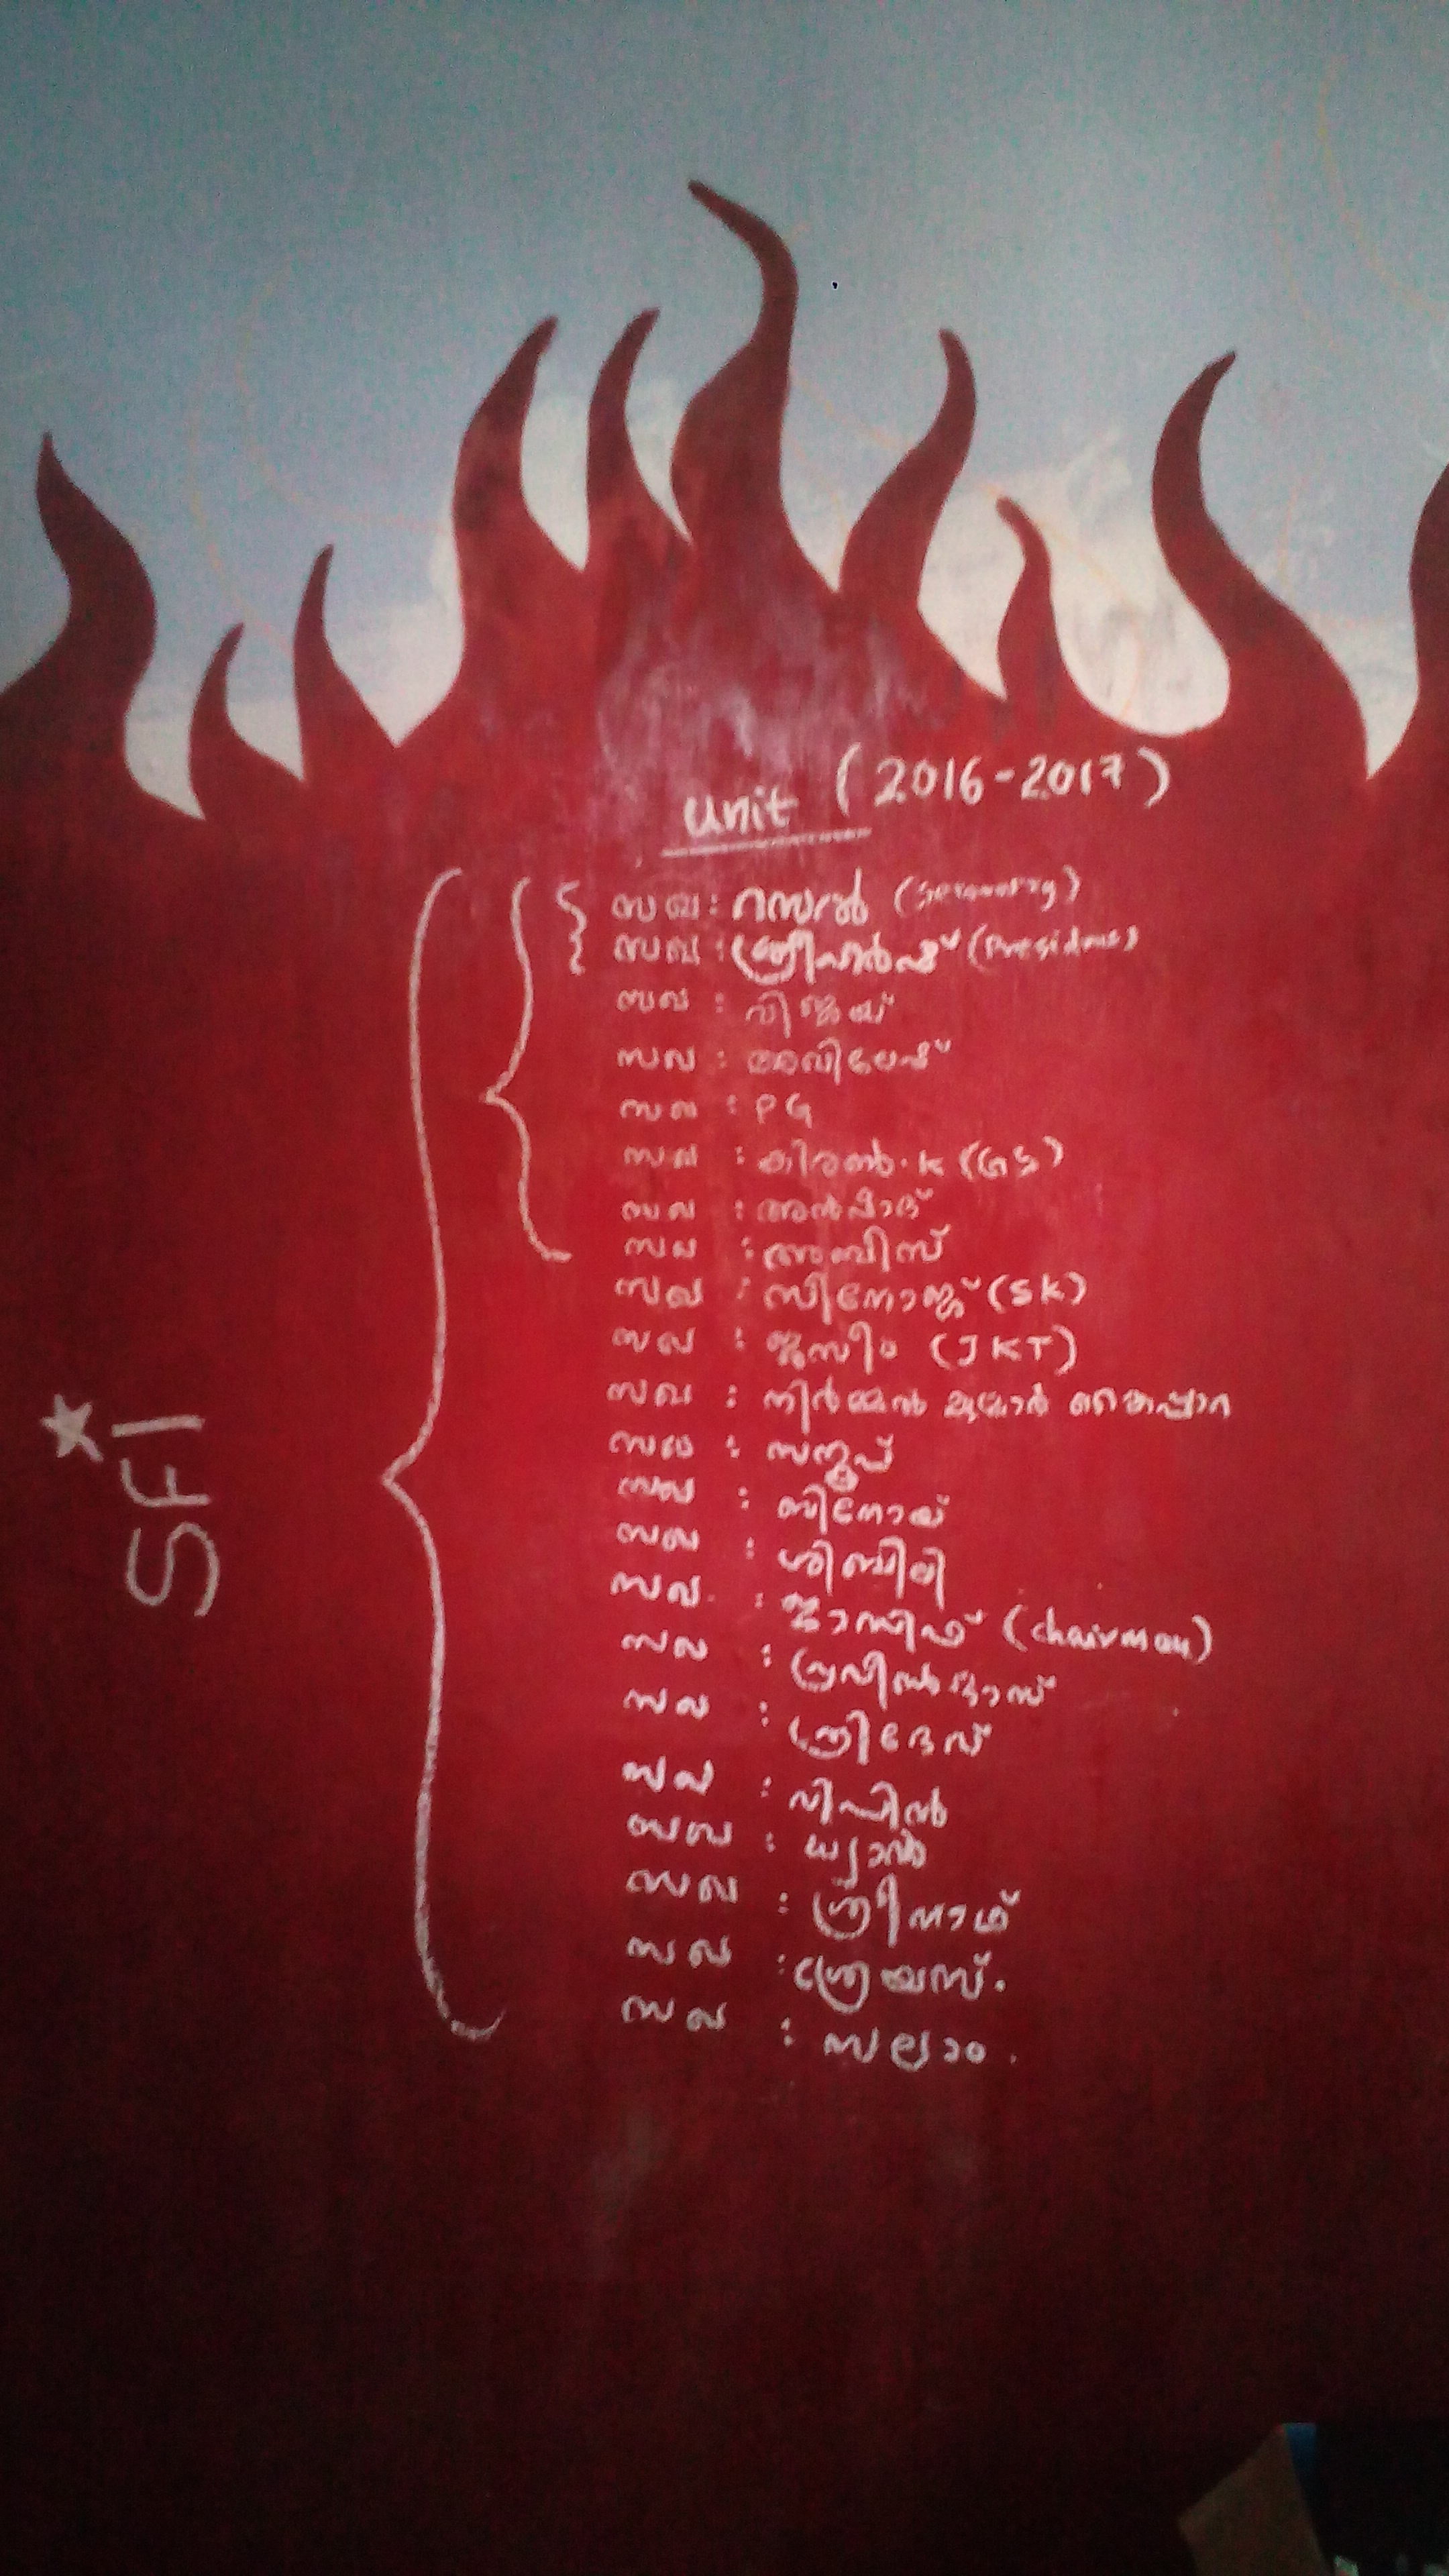 unit (2016-2017)
സഖ : റസൽ (Secretary)
സഖ : ശ്രീഹർഷ് (President)
സഖ : വിജയ്
സഖ : അവിലേഷ്
സഖ : PG
സഖ : കിരൺ.K (GS)
സഖ : അൻഷാദ്
സഖ : അബിസ്
സഖ : സിനോജ് (SK)
സഖ : ജസീം (JKT)
സഖ : നിർമ്മൽ കുമാർ
സഖ : സനൂപ്
സഖ : ബിനോയ്
സഖ : ശിബിലി
സഖ : ജാസിഫ് (chairman)
സഖ : പ്രവീൺദാസ്
സഖ : ശ്രീദേവ്
സഖ : വിപിൻ
സഖ : ധ്യാൻ
സഖ : ശ്രീനാഥ്
സഖ : ശ്രേയസ്.
സഖ : സലാം.
SFI